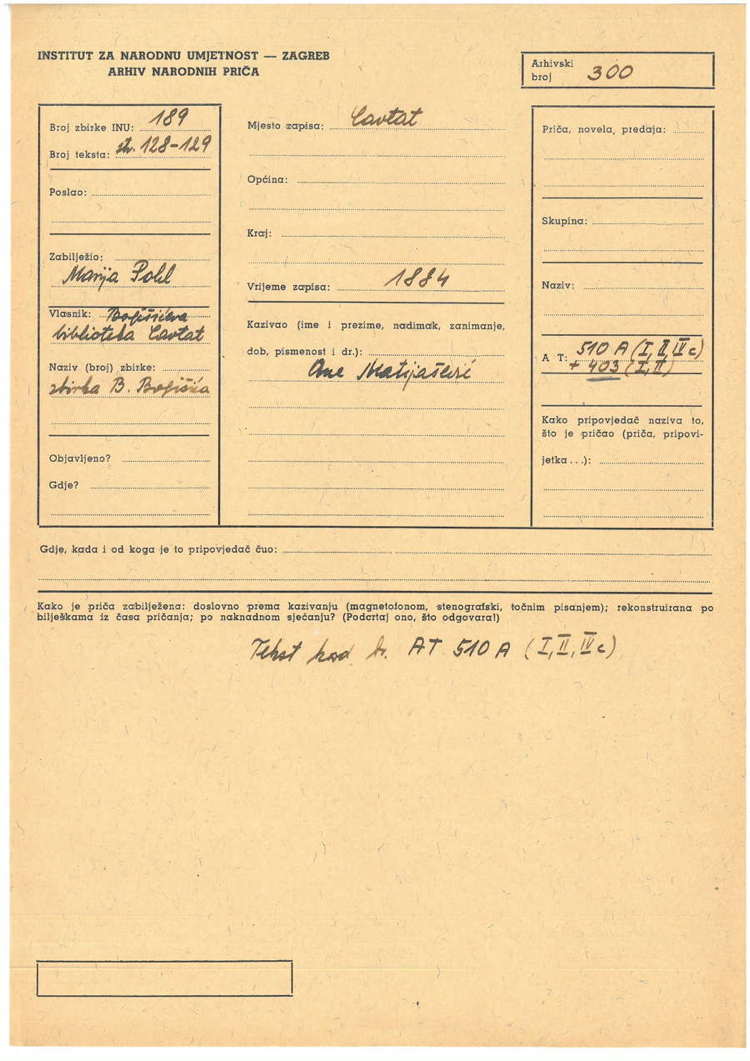 INSTITUT ZA NARODNU UMJETNOST — ZAGREB
ARHIV NARODNIH PRIČA
Arhivski
broj 300
Broj zbirke INU: 189
Broj teksta: str. 128-129
Poslao:
Zabilježio:
Marija Pohl
Vlasnik: Bogišićeva
biblioteka Cavtat
Naziv (broj) zbirke:
zbirka B. Bogišića
Objavljeno?
Gdje?
Mjesto zapisa: Cavtat
Općina:
Kraj:
Vrijeme zapisa: 1884
Kazivao (ime i prezime, nadimak, zanimanje,
dob, pismenost i dr.):
Ane Matijašević
Priča, novela, predaja:
Skupina:
Naziv:
A T: 510 A (I, II, IV c)
+ 403 (I, II)
Kako pripovjedač naziva to,
što je pričao (priča, pripovi-
jetka...):
Gdje, kada i od koga je to pripovjedač čuo:
Kako je priča zabilježena: doslovno prema kazivanju (magnetofonom, stenografski, točnim pisanjem); rekonstruirana po
bilješkama iz časa pričanja; po naknadnom sjećanju? (Podcrtaj ono, što odgovara!)
Tekst kod br. AT 510 A (I, II, IV c)